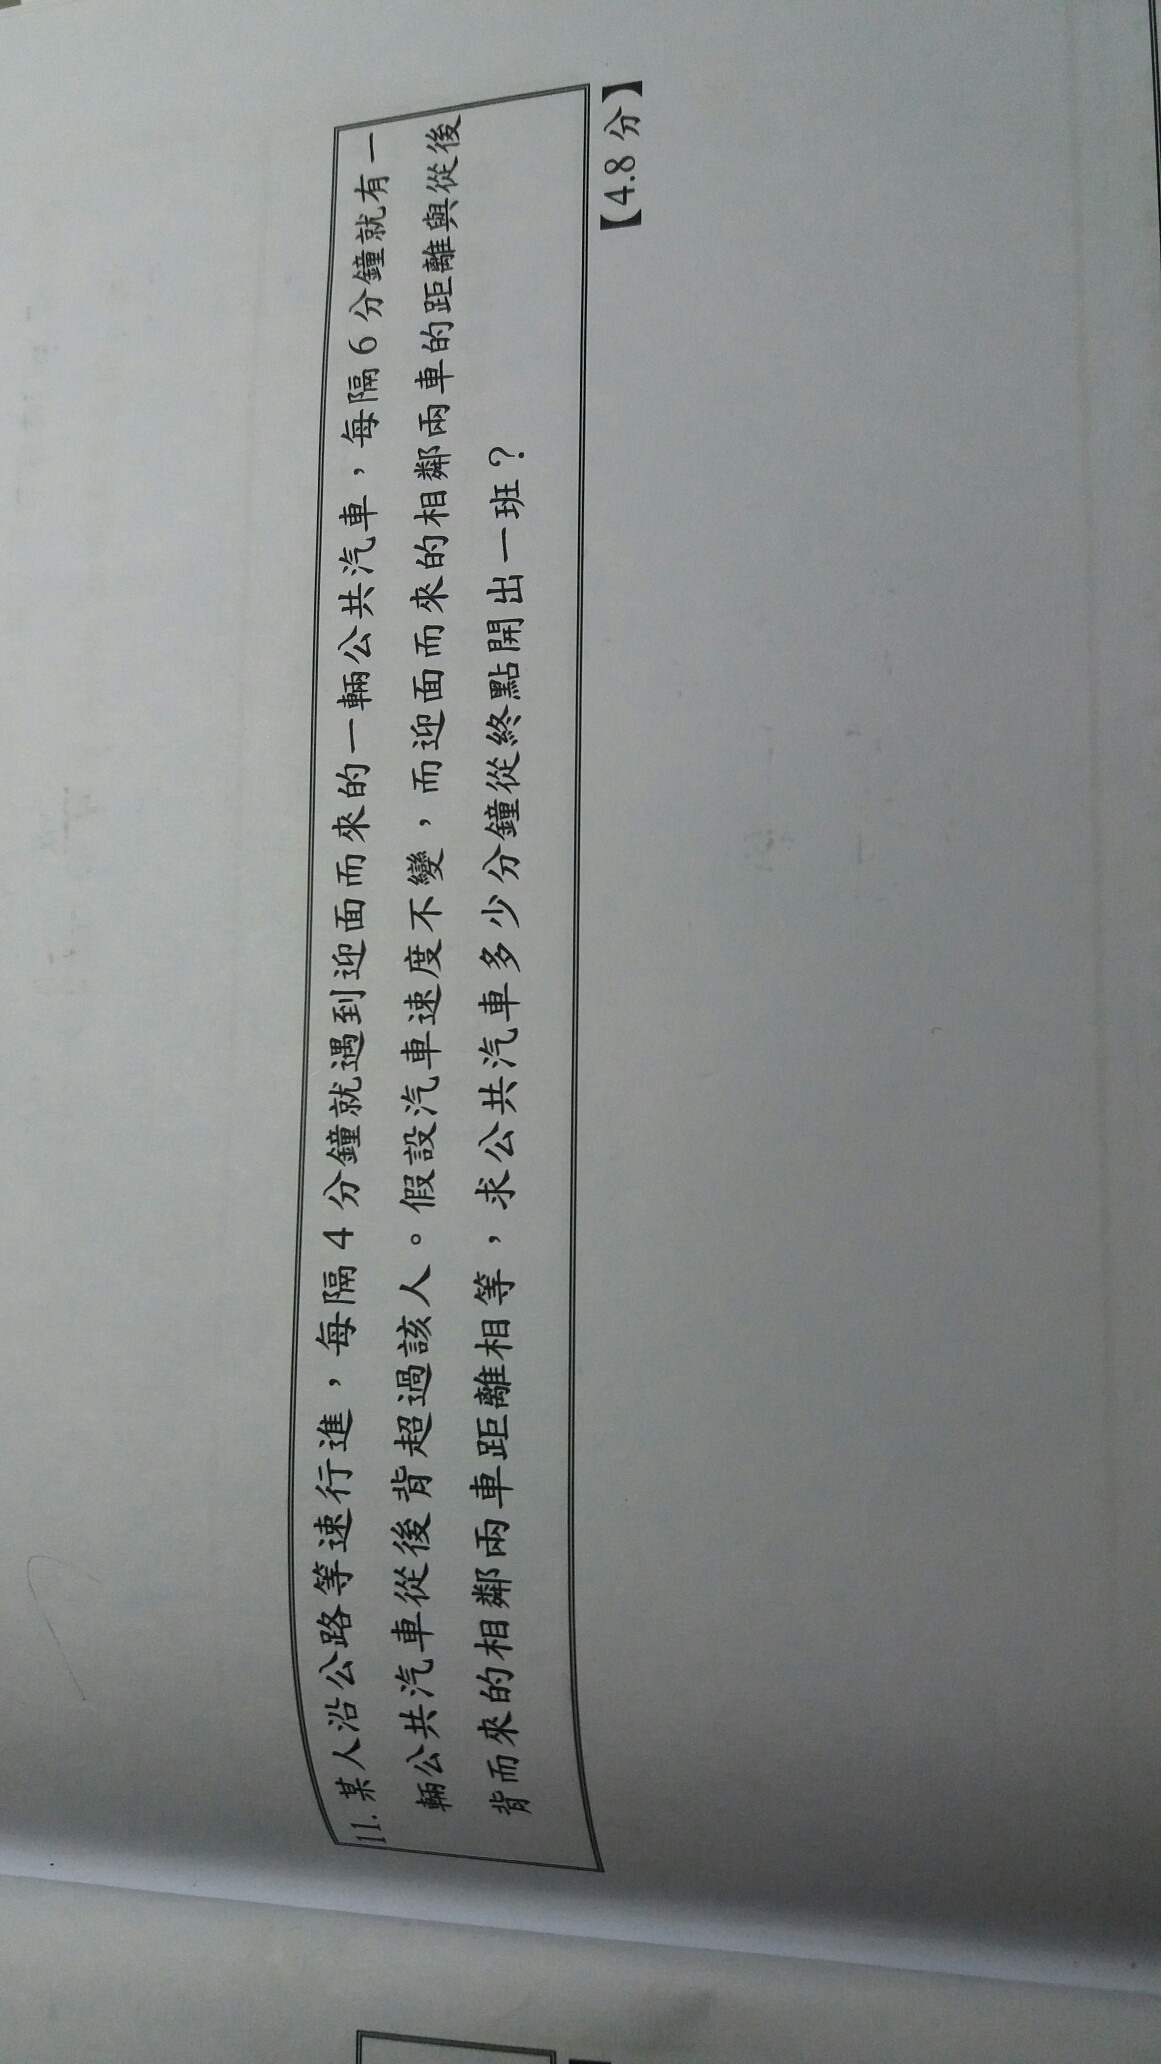 11. 某人沿公路等速行進，每隔 4 分鐘就遇到迎面而來的一輛公共汽車，每隔 6 分鐘就有一
輛公共汽車從後背超過該人。假設汽車速度不變，而迎面而來的相鄰兩車的距離與從後
背而來的相鄰兩車距離相等，求公共汽車多少分鐘從終點開出一班？
【4.8 分】